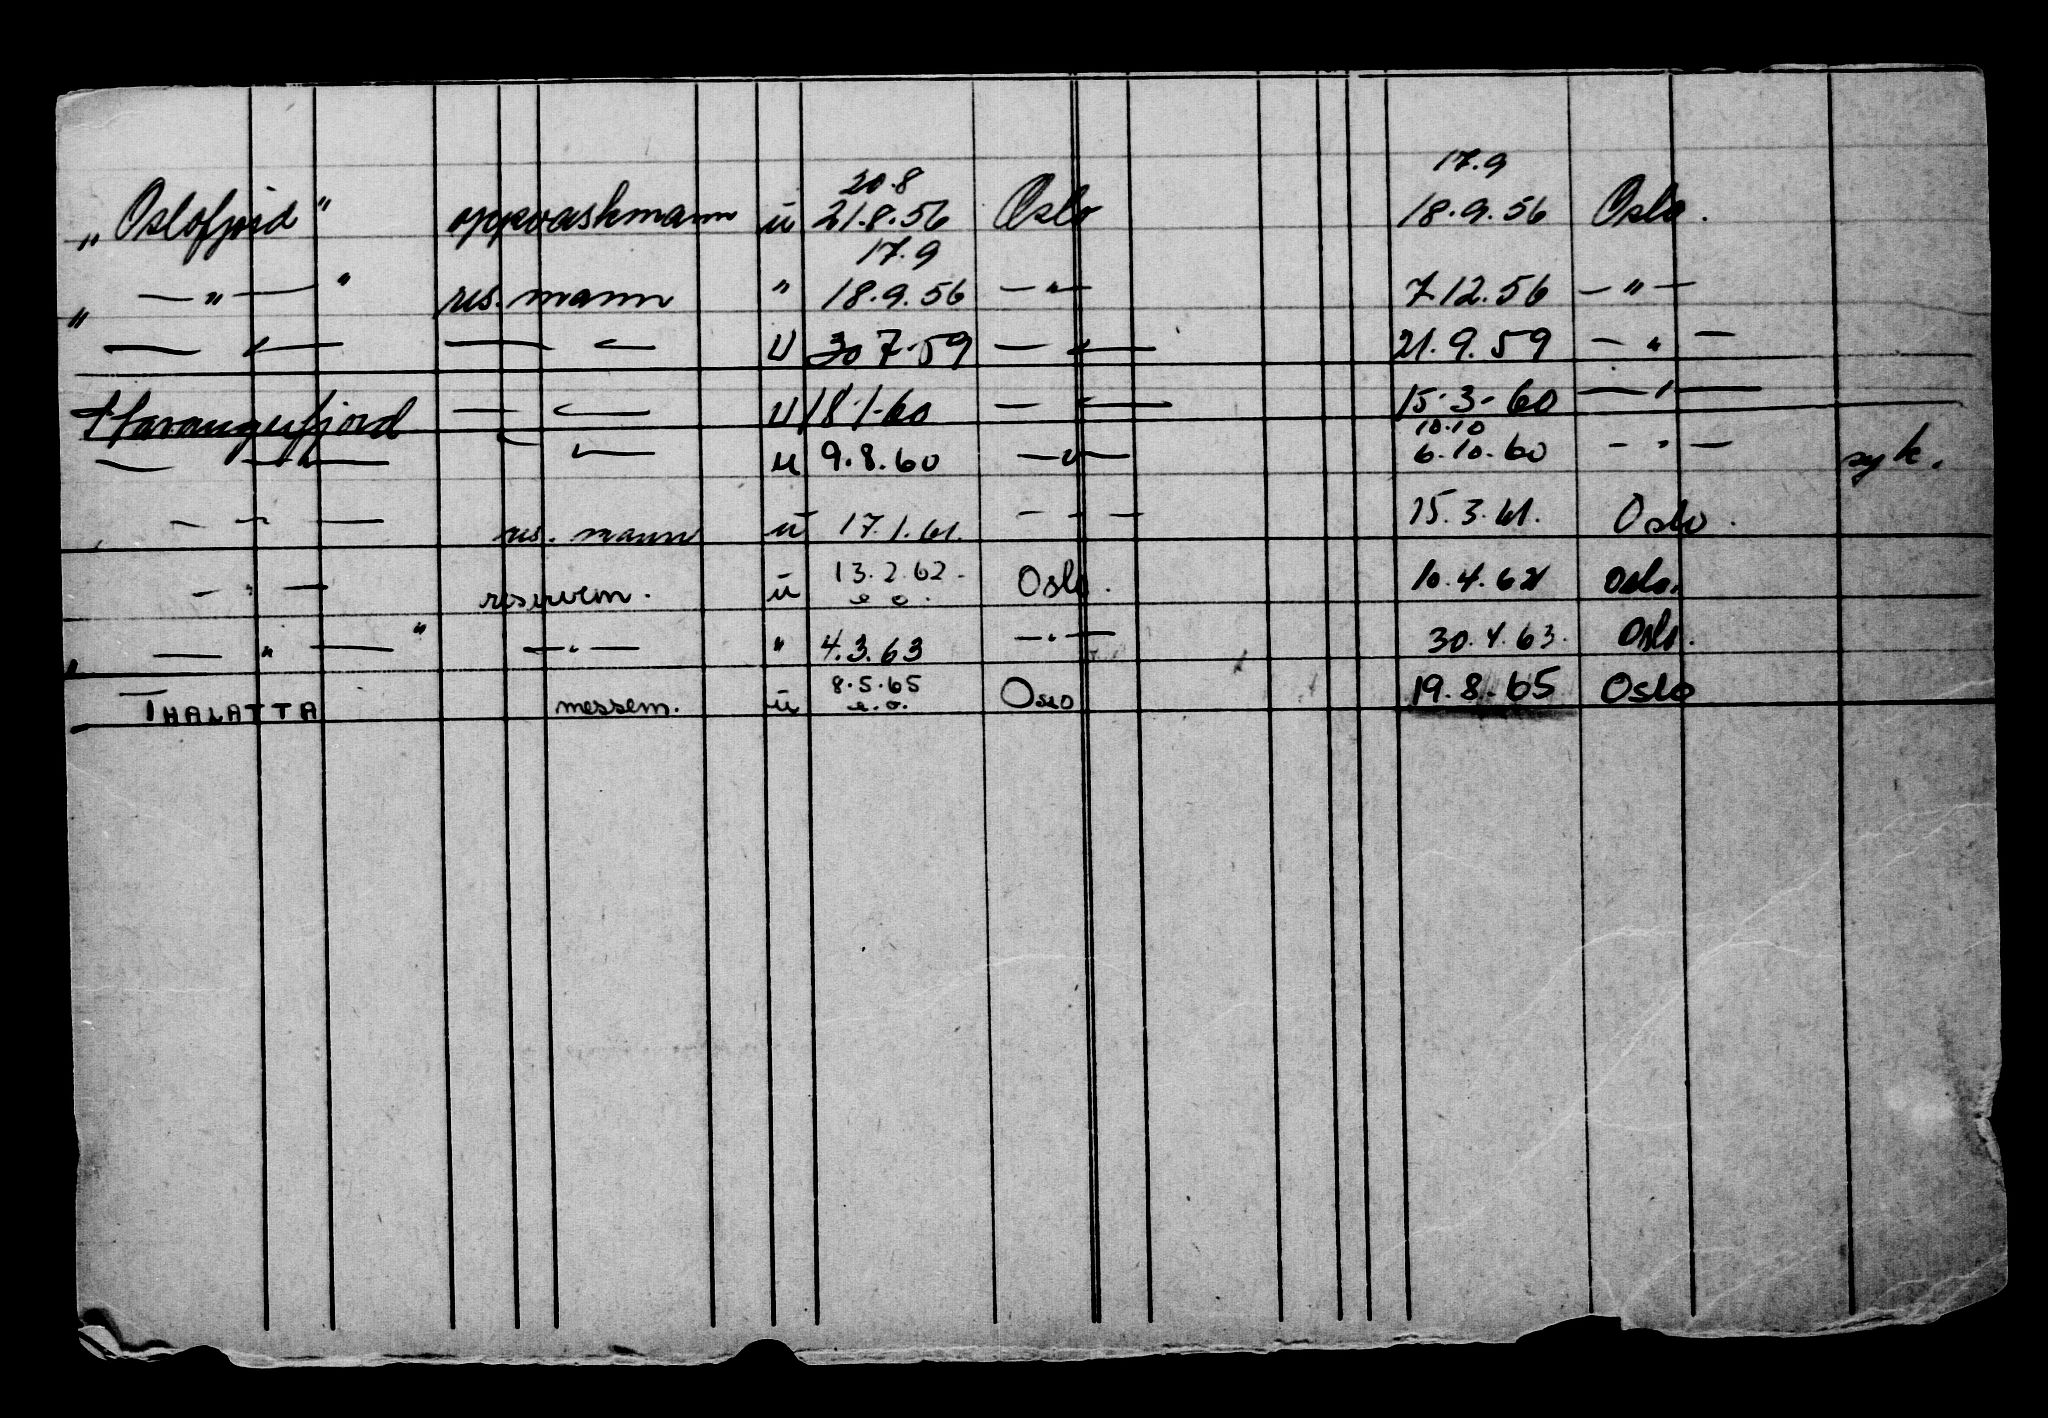 20.8 17.9
„Oslofjord" oppvaskmann ü 21.8.56 Oslo 18.9.56 Oslo.
17.9
„ — „ — " res. mann " 18.9.56 — " — 7.12.56 — " —
— " — — " — U 30 7-59 — " — 21.9.59 — " —
Stavangerfjord — " — U 18-1-60 — " — 15-3-60 — " —
10.10
— " — — " — u 9.8.60 — " — 6.10.60 — " — syk.
— " — res. mann ü 17.1.61. — " — 15.3.61. Oslo.
— " — reservem. ü 13.2.62. Oslo. 10.4.62 Oslo.
e.o.
„ — " — " — " — " 4.3.63 — " — 30.4.63. Oslo.
THALATTA messem. ü 8.5.65 Oslo 19.8.65 Oslo
e.o.